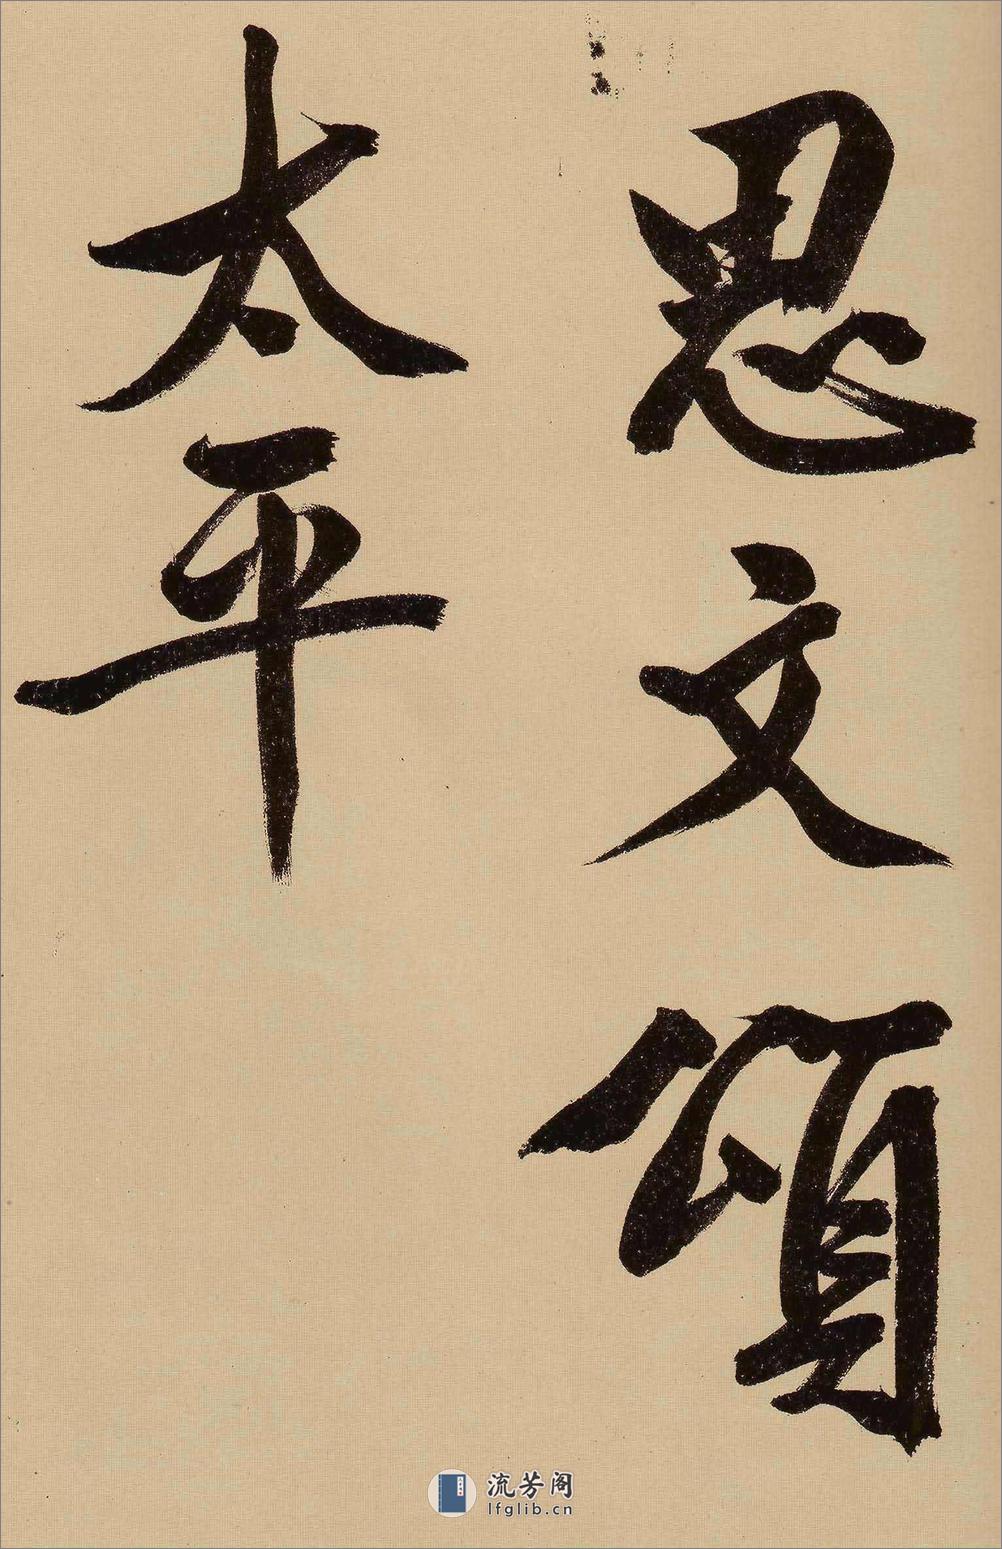 思文頌
太平
流芳阁
lfglib.cn